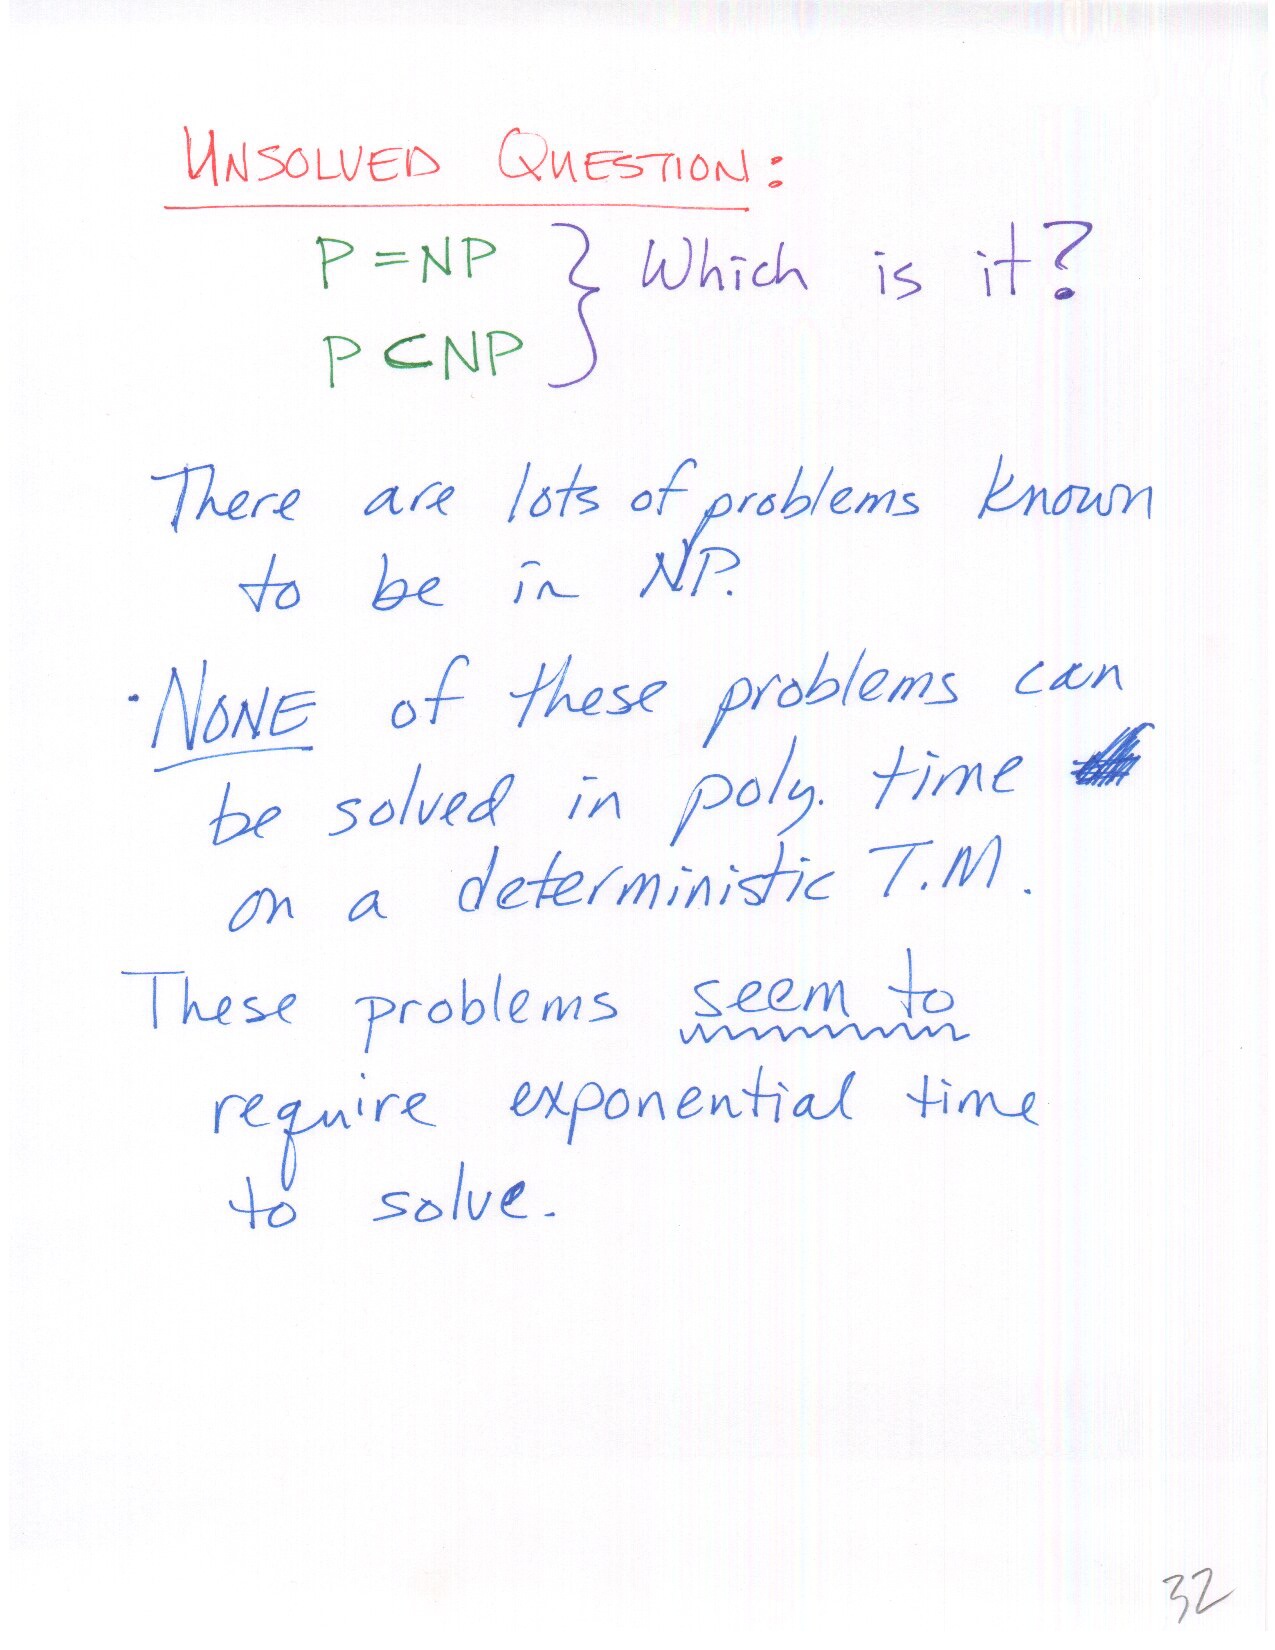 UNSOLVED QUESTION:
P = NP } Which is it?
P ⊂ NP
There are lots of problems known
to be in NP.
· NONE of these problems can
be solved in poly. time
on a deterministic T.M.
These problems seem to
require exponential time
to solve.
32